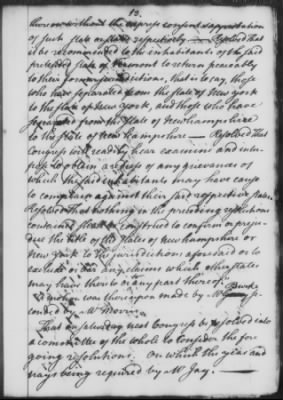 13.
thereon without the express consent & approbation
of such State or States respectively — Resolved That
it be recommended to the inhabitants of the said
pretended State of Vermont to return peaceably
to their former jurisdictions, that is to say, those
who have separated from the State of New York
to the State of New York, and those who have
separated from the State of Newhampshire
to the State of New Hampshire — Resolved That
Congress will readily hear examine and
to obtain a redress of any grievances of
which the said inhabitants may have cause
to complain against their said respective States
Resolved That nothing in the preceding resolutions
contained shall be construed to confirm or preju
dice the title of the States of Newhampshire or
New York to the jurisdictions aforesaid or to
exclude or bar any claims which other States
may have thereto or any part thereof.
A motion was thereupon made by Mr Burke
conded by Mr Morris
That on Saturday next Congress be resolved into
a committee of the whole to consider the fore
going resolutions. On which the yeas and
nays being required by Mr Jay. —